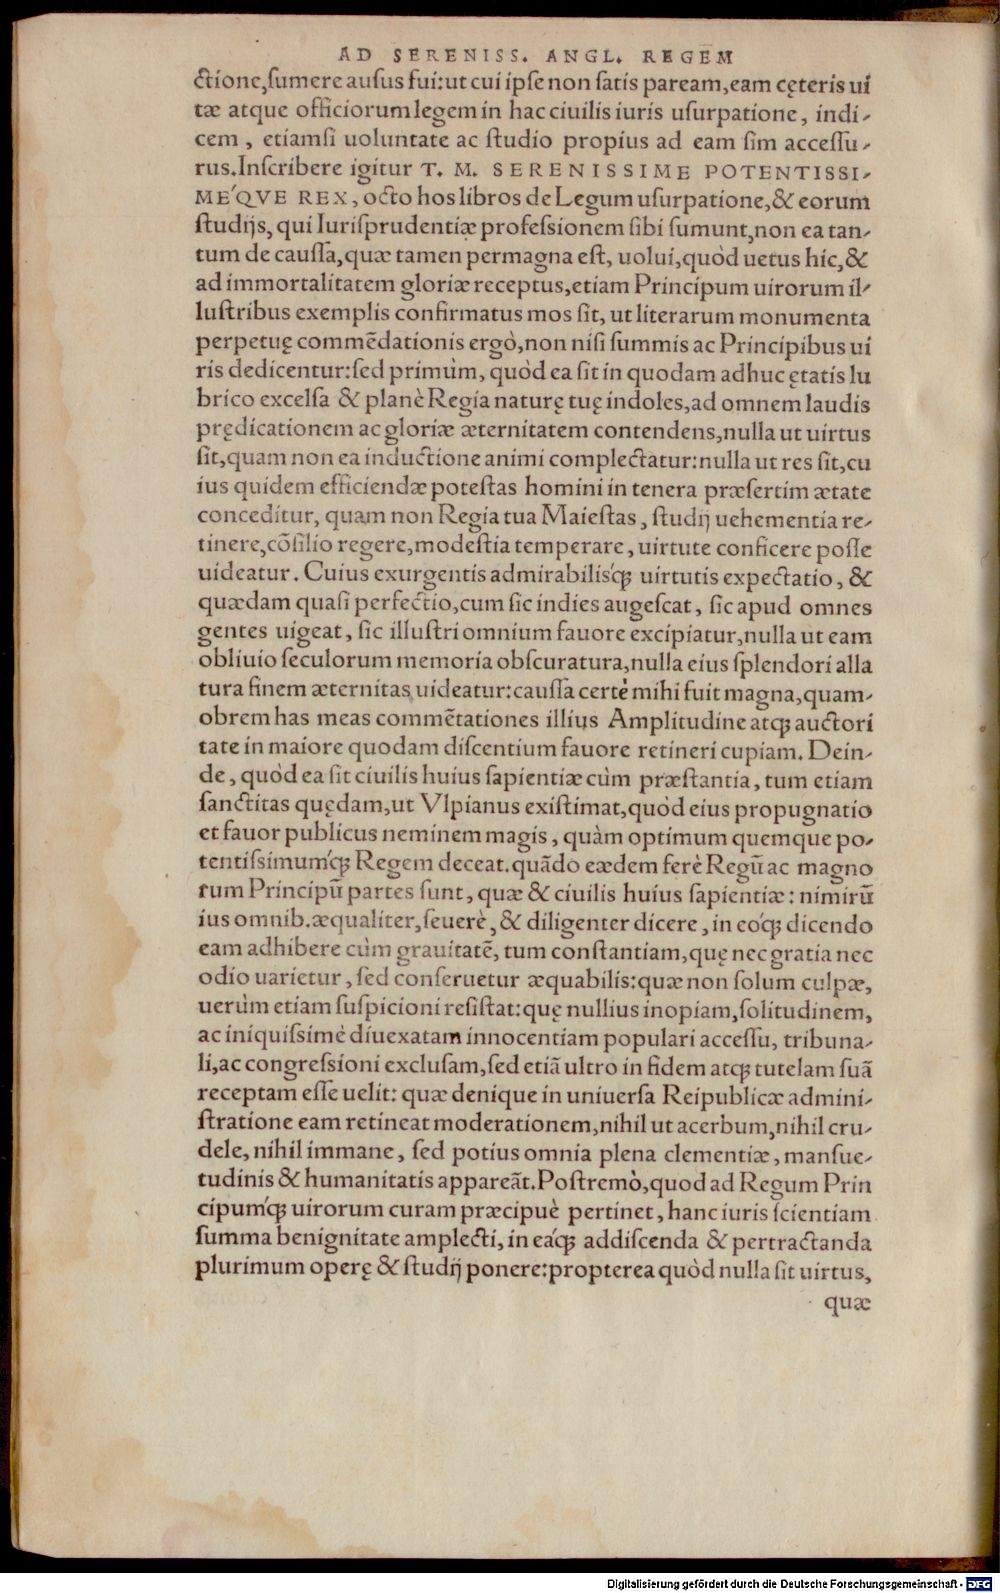 AD SERENISS. ANGL. REGĒM
ctione,ſumere auſus fui:ut cui ipſe non ſatis paream,eam cęteris ui
tæ atque officiorum legem in hac ciuilis iuris uſurpatione, indi-
cem, etiamſi uoluntate ac ſtudio propius ad eam ſim acceſſu-
rus.Inſcribere igitur T. M. SERENISSIME POTENTISSI-
MEʹQVE REX, octo hos libros de Legum uſurpatione,& eorum
ſtudijs, qui Iuriſprudentiæ profeſsionem ſibi ſumunt,non ea tan-
tum de cauſſa,quæ tamen permagna eſt, uolui,quòd uetus hic,&
ad immortalitatem gloriæ receptus,etiam Principum uirorum il-
luſtribus exemplis confirmatus mos ſit, ut literarum monumenta
perpetuę commēdationis ergò,non niſi ſummis ac Principibus ui
ris dedicentur:ſed primùm, quòd ea ſit in quodam adhuc ętatis lu
brico excelſa & planè Regia naturę tuę indoles,ad omnem laudis
prędicationem ac gloriæ æternitatem contendens,nulla ut uirtus
ſit,quam non ea inductione animi complectatur:nulla ut res ſit,cu
ius quidem efficiendæ poteſtas homini in tenera præſertim ætate
conceditur, quam non Regia tua Maieſtas, ſtudij uehementia re-
tinere,cōſilio regere,modeſtia temperare, uirtute conficere poſſe
uideatur. Cuius exurgentis admirabilisq́; uirtutis expectatio, &
quædam quaſi perfectio,cum ſic indies augeſcat, ſic apud omnes
gentes uigeat, ſic illuſtri omnium fauore excipiatur,nulla ut eam
obliuio ſeculorum memoria obſcuratura,nulla eius ſplendori alla
tura finem æternitas uideatur:cauſſa certè mihi fuit magna,quam-
obrem has meas commētationes illius Amplitudine atq; auctori
tate in maiore quodam diſcentium fauore retineri cupiam. Dein-
de, quòd ea ſit ciuilis huius ſapientiæ cùm præſtantia, tum etiam
ſanctitas quędam,ut Vlpianus exiſtimat,quòd eius propugnatio
et fauor publicus neminem magis, quàm optimum quemque po-
tentiſsimumq́; Regem deceat.quādo eædem ferè Regū ac magno
rum Principū partes ſunt, quæ & ciuilis huius ſapientiæ: nimirū
ius omnib.æqualiter,ſeuerè, & diligenter dicere, in eoq́; dicendo
eam adhibere cùm grauitatē, tum conſtantiam,quę nec gratia nec
odio uarietur, ſed conſeruetur æquabilis:quæ non ſolum culpæ,
uerùm etiam ſuſpicioni reſiſtat:quę nullius inopiam,ſolitudinem,
ac iniquiſsimè diuexatam innocentiam populari acceſſu, tribuna-
li,ac congreſsioni excluſam,ſed etiā ultro in fidem atq; tutelam ſuā
receptam eſſe uelit: quæ denique in uniuerſa Reipublicæ admini-
ſtratione eam retineat moderationem,nihil ut acerbum,nihil cru-
dele, nihil immane, ſed potius omnia plena clementiæ, manſue-
tudinis & humanitatis appareāt.Poſtremò,quod ad Regum Prin
cipumq́; uirorum curam præcipuè pertinet, hanc iuris ſcientiam
ſumma benignitate amplecti, in eaq́; addiſcenda & pertractanda
plurimum operę & ſtudij ponere:propterea quòd nulla ſit uirtus,
quæ
Digitalisierung gefördert durch die Deutsche Forschungsgemeinschaft - DFG